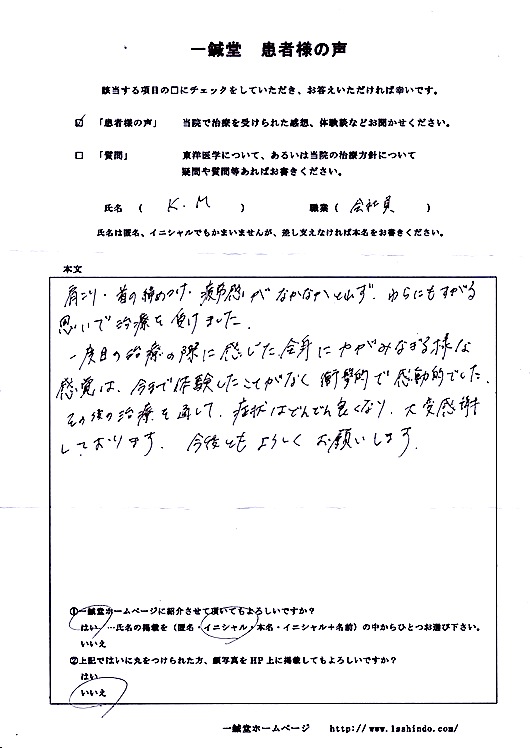 一鍼堂 患者様の声
該当する項目の□にチェックをしていただき、お答えいただければ幸いです。
☑ 「患者様の声」 当院で治療を受けられた感想、体験談などお聞かせください。
□ 「質問」 東洋医学について、あるいは当院の治療方針について
疑問や質問等あればお書きください。
氏名 ( K.M ) 職業 ( 会社員 )
氏名は匿名、イニシャルでもかまいませんが、差し支えなければ本名をお書きください。
本文
肩こり・首の締めつけ・疲労感がなかなかとれず、わらにもすがる
思いで治療を受けました。
一度目の治療の際に感じた全身に力がみなぎる様な
感覚は、今まで体験したことがなく衝撃的で感動的でした。
その後の治療を通して、症状はどんどん良くなり、大変感謝
しております。今後ともよろしくお願いします。
①一鍼堂ホームページに紹介させて頂いてもよろしいですか?
はい …氏名の掲載を(匿名・イニシャル・本名・イニシャル+名前)の中からひとつお選び下さい。
いいえ
②上記ではいに丸をつけられた方、顔写真をHP上に掲載してもよろしいですか?
はい
いいえ
一鍼堂ホームページ http://www.1sshindo.com/